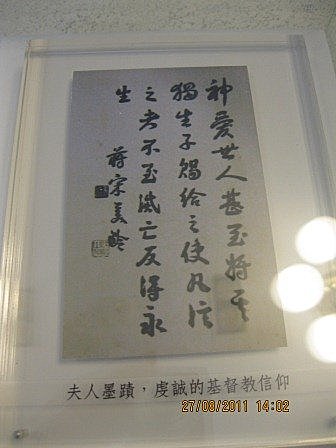 神愛世人甚至將其
獨生子賜給之使凡信
之者不至滅亡反得永
生
蔣宋美齡
夫人墨蹟，虔誠的基督教信仰
27/08/2011 14:02